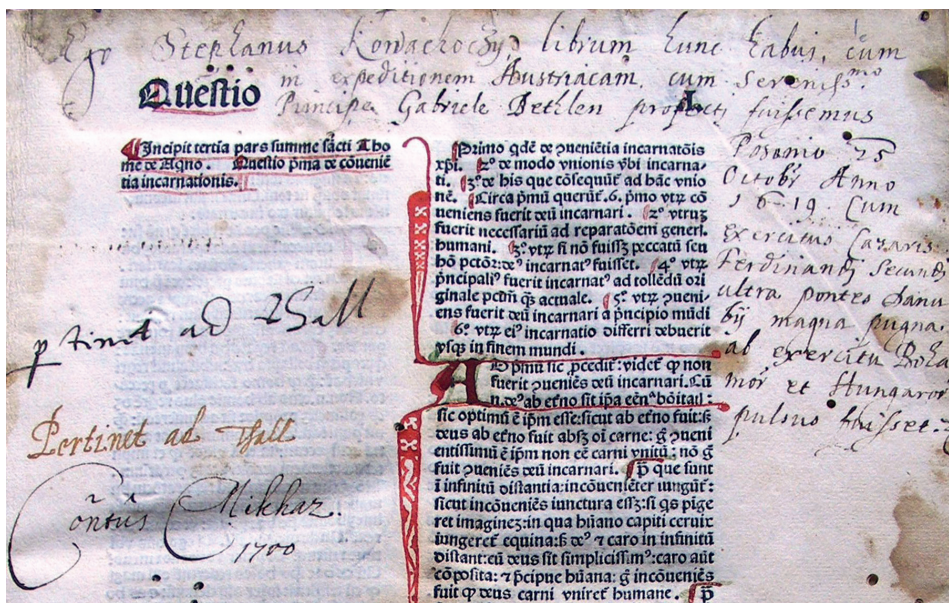 Ego Stephanus Kowachoczy librum hunc habui, cum
in expeditionem Austriacam, cum Sereniss.mo
Principe Gabriele Bethlen profecti fuissemus
Posonio 25
Octobr Anno
1619. Cum
exercitus Caesaris
Ferdinandj Secundj
ultra pontes Danu
bij magna pugna
ab exercitu Bohe
mor et Hungaror
pulsus fuisset.
Questio
Incipit tertia pars summe sācti Tho
me de Aqno. Questio pma de cōueniē
tia incarnationis.
ptinet ad Thall
Pertinet ad Thall
Cōntus Mikhaz.
1700
Primo qdē de ꝯueniētia incarnatōis
xpi. 2º de modo vnionis vbi incarna-
ti. 3º de his que cōsequūt ad hāc vnio
nē. Circa pmū querūt .6. pmo vtꝝ cō
ueniens fuerit deū incarnari. 2º vtruꝫ
fuerit necessariū ad reparatōem generl.
humani. 3º vtꝝ si nō fuissꝫ peccatū seu
hō pctōr: deꝰ incarnatꝰ fuisset. 4º vtꝝ
pncipaliꝰ fuerit incarnatꝰ ad tollēdū ori
ginale pctm̄ q̄ʒ actuale. 5º vtꝝ ꝯueni-
ens fuerit deū incarnari a pncipio mūdi
6º vtꝝ eiꝰ incarnatio differri debuerit
vsqꝫ in finem mundi.
AD pmū sic pcedit: videt ꝙ non
fuerit ꝯueniēs deū incarnari. Cū
n. deꝰ ab etno sit ipa eēn bōitatl:
sic optimū ē ipm esse: sicut ab etno fuit: sꝫ
deus ab etno fuit absqꝫ oī carne: g ꝯueni
entissimū ē ipm non eē carni vnitū: nō g
fuit ꝯueniēs deū incarnari. P que sunt
ī infinitū distantia: incōueniēter iungūt:
sicut incōueniēs iunctura essꝫ: si qs pige
ret imagineꝫ: in qua hūano capiti ceruix
iungeret equina: sꝫ deꝰ ⁊ caro in infinitū
distant: cū deus sit simplicissimꝰ: caro aūt
cōposita: ⁊ pcipue hūana: g incōueniēs
fuit ꝙ deus carni vniret humane. P